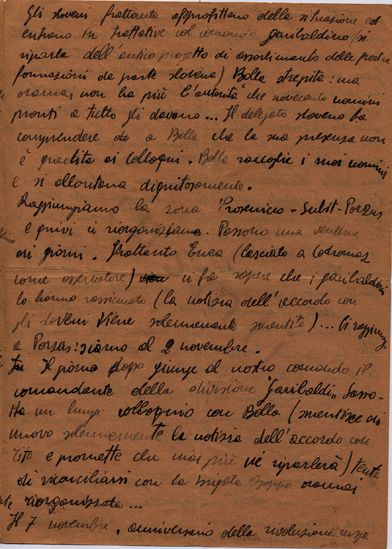 Gli sloveni frattanto approfittano della situazione ed
entrano in trattative col comando garibaldino (si
riparla dell'antico progetto di assorbimento delle
formazioni da parte slovena) Bolla strepita: ma
oramai non ha più l'autorità che novecento uomini
pronti a tutto gli davano... Il delegato sloveno fa
comprendere a Bolla che la sua presenza non
è gradita ai colloqui. Bolla raccoglie i suoi uomini
e si allontana dignitosamente.
Raggiungiamo la zona Prosenicco - Subit - Porzus
e quivi ci riorganizziamo. Passano una
di giorni. Frattanto Enea (lasciato a Codromaz
come osservatore) ci fa sapere che i garibaldini
lo hanno rassicurato (la notizia dell'accordo con
gli sloveni viene solennemente smentita)... Ci raggiunge
a Porzus: siamo al 2 novembre.
Il giorno dopo giunge al nostro comando il
comandante della divisione "Garibaldi" Sasso.
Ha un lungo colloquio con Bolla (smentisce di
nuovo solennemente la notizia dell'accordo con
Tito e promette che mai più se ne riparlerà) tenta
di riconciliarsi con la brigata Osoppo oramai
riorganizzata...
Il 7 novembre, anniversario della rivoluzione russa